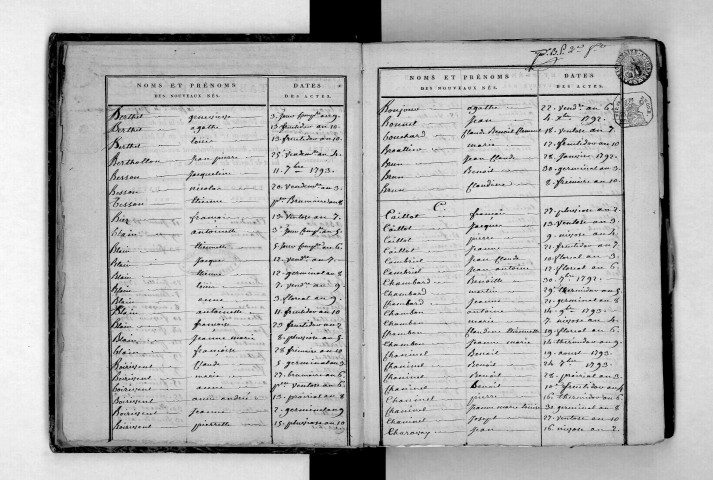 NOMS ET PRÉNOMS DES NOUVEAUX NÉS. DATES DES ACTES.
Berthet genevieve 3. jour comp.re an 9.
Berthet agathe 13 fructidor an 10.
Berthet louise 13 fructidor an 10.
Berthollon jean pierre 25. vendem.re an 4.
Besson jacqueline 11. 7bre 1793.
Besson nicolas 20. vendem.re an 3.
Besson étienne p.er Brumaire an 8
Biez françois 19 Ventose an 7.
Blain antoinette 3e jour comp.re an 5.
Blain étiennette 5. jour comp.re an 6.
Blain jacques 12. vend.re an 7.
Blain étienne 12. germinal an 8
Blain 7. vend.re an 9
Blain anne 3. floreal an 9.
Blain antoinette 11. fructidor an 10
Blain françoise 23 fructidor an 2
Blain jeanne marie 8. pluviose an 5.
Blain françoise 28 frimaire an 10
Boirivent Claude 5 germinal an 3.
Boirivent marie 27. brumaire an 6.
Boirivent anne p.er Ventose an 6.
Boirivent andré 13. prairial an 8
Boirivent jeanne 2. germinal an 9
Boirivent pierrette 15. pluviose an 10
NOMS ET PRÉNOMS DES NOUVEAUX NÉS. DATES DES ACTES.
Bonjour agathe 22. vend.re an 6
Bonnet jean 4. Xbre 1792.
Bouchard Claude Benoit Étienne 18. ventose an 7.
marie 17. fructidor an 10.
Brun jean Claude 28. janvier 1792.
Brun Benoit 30. germinal an 3.
Brun Claudine 8. frimaire an 10.
C.
Caillot françois 27. pluviose an 2.
Caillot jacques 13. ventose an 3.
Caillot pierre 9. nivose an 4.
Caillot jeanne 21. fructidor an 7.
Cambriel jean Claude 10. floreal an 3.
Cambriel jean antoine 17. floreal an 6.
Chambard Benoitte 30. 7bre 1792.
Chambard martin 29. thermidor an 5.
Chambard jeanne 21. germinal an 8
Chambon antoine 14. 9bre 1792.
Chambon marie 7. nivose an 4.
Chambon Claudine étiennette 19. floreal an 6
Chambon jeanne marie 14. thermidor an 9.
Chavinel Benoit 19. aoust 1793
Chavinel Benoit 24. 7bre 1793.
Chavinel Benoit 28. prairial an 3.
Chavinel Benoit 10e fructidor an 4
Chavinel pierre 16. thermidor an 6.
Chavinel jeanne marie 30 germinal an 8
Chavinel joseph 27. ventose an 10
Charassay jean 16. nivose an 2.